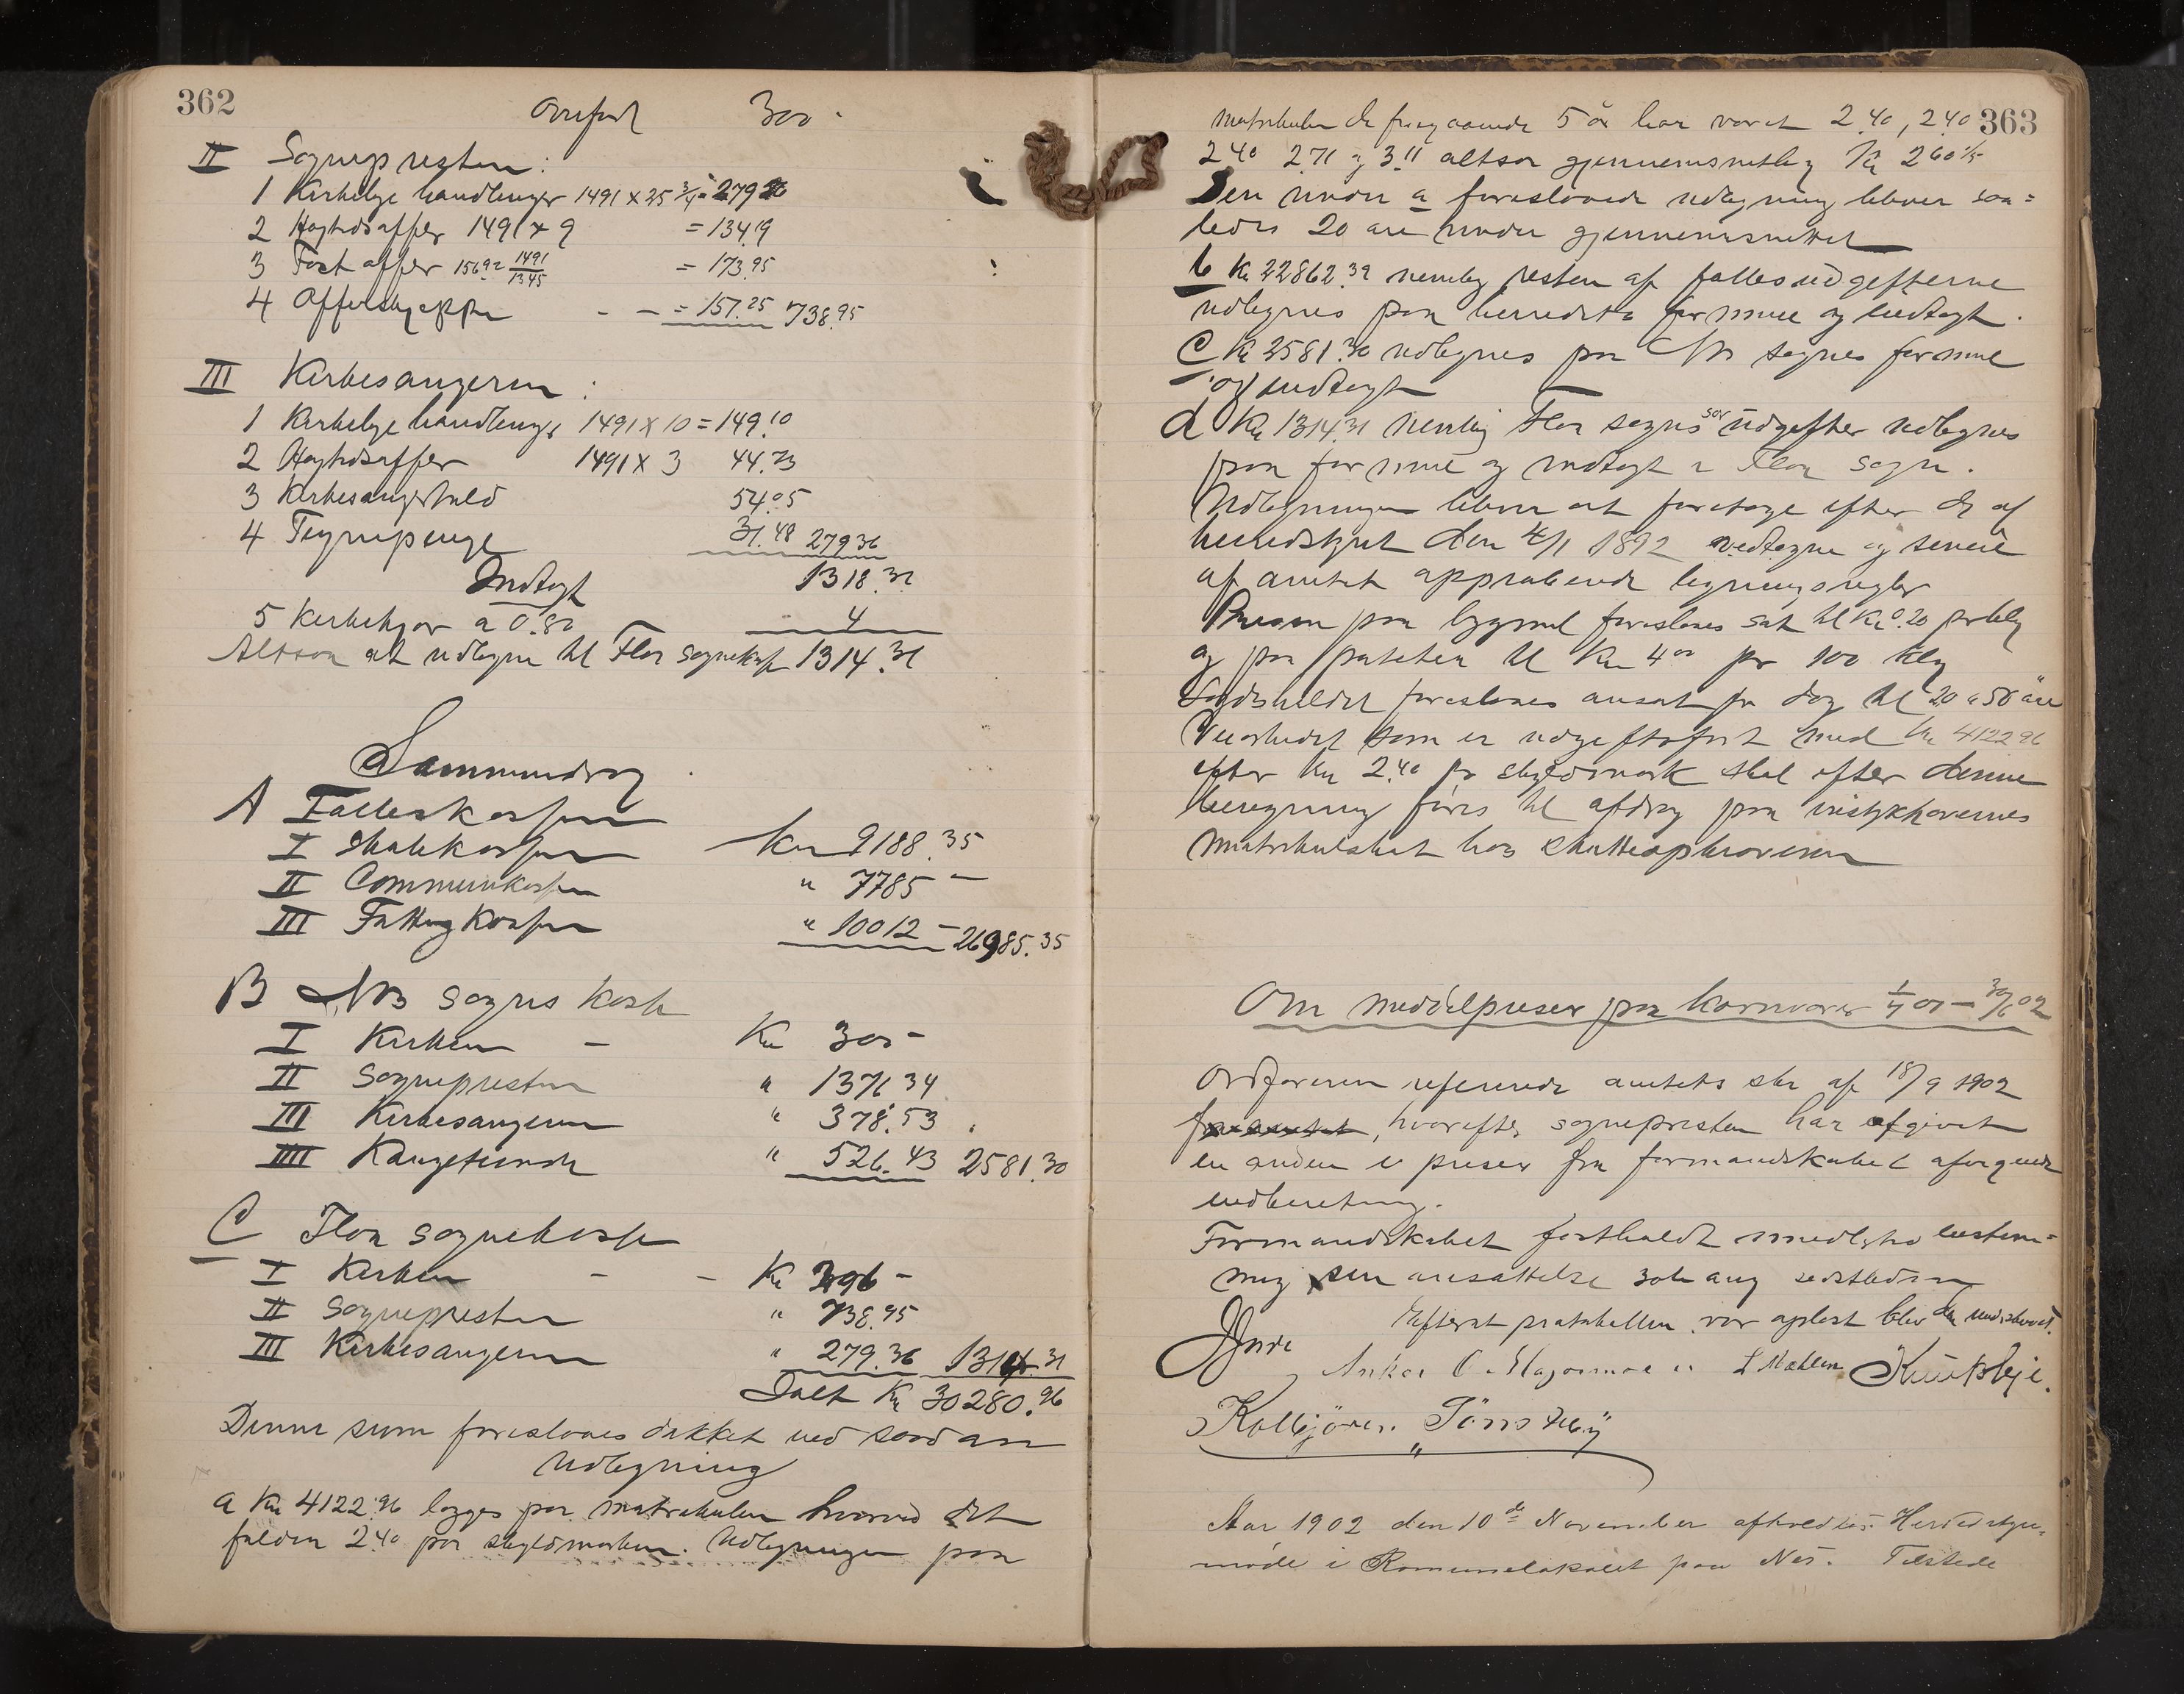 362
Overført 300 -
II Sognepresten:
1 Kirkelige handlinger 1491 x 25 3/4 = 279.26
2 Høytidsoffer 1491 x 9 = 134.19
3 Fast offer 156.92 1491/1345 = 173.95
4 Offerskjeppe - - = 151.25 738.95
III Kirkesangeren:
1 Kirkelige handlinger 1491 x 10 = 149.10
2 Høytidsoffer 1491 x 3 44.73
3 Kirkesangertold 54.05
4 Tegnepenge 31.48 279.36
1318.31
Indtægt
5 kirkekjør a 0.80 4
Altsaa at utlegne til Flora sognekasse 1314.31
Sammendrag
A Falleskassen
I Skolekassen Kr 9188.35
II Communkassen " 7785 -
III Fattigkassen " 10012 - 26985.35
B Nes sogns kasse
I Kirken - Kr 300 -
II Sognepresten " 1376.34
III Kirkesangeren " 378.53
IIII Kongetiende " 526.43 2581.30
C Flora sognekasse
I Kirken - - Kr 296 -
II Sognepresten " 738.95
III Kirkesangeren " 279.36 1314.31
Ialt Kr 30280.96
Denne sum foreslaaes dækket ved saadan
Udligning
a Kr 4122.96 lægges paa matrikulen hvorved det
falder 2.40 paa skyldmarken. Udligningen paa
363
matrikulen de foregaaende 5 år har været 2.40, 2.40
2.40 2.71 og 3.11 altsaa gjennemsnitlig Kr 2.60 2/5
Den under a foreslaaede udligning bliver saa=
ledes 20 øre under gjennemsnittet
b Kr 22862.39 nemlig resten af fallesudgifterne
udlignes paa herredets formue og indtægt.
C Kr 2581.30 udlignes paa Nes sognes formue
og indtægt
d Kr 1314.31 nemlig Flora sogns udgifter udlignes
paa formue og indtægt i Flora sogn.
Udligningen bliver at foretage efter de af
herredstyret den 1892 vedtagne og senere
af amtet approberende ligningsregler
Prisen paa bygmel foreslaaes sat til Kr 0.20 pr kilo
og paa poteter til Kr 4.00 pr 100 kilo
foreslaaes ansat pr dag til 20 a 50 øre
Veiarbeidet som er udgiftsført med Kr 4122.96
efter Kr 2.40 pr skyldmark skal efter denne
beregning føres til afdrag paa veistykkhavernes
matrikulskat hos skatteopkræveren
Om middelpriser paa kornvarer 1/7 01 - 30/6 02
Ordføreren refererede amtets skr af 18/9 1902
, hvorefter sognepresten har afgivet
en anden i priser fra formandskabet afvigende
indberetning.
Formandskabet fastholdt imidlertid bestem=
sin ansættelse
Efterat protokollen var oplæst blev den underskrevet.
L Mæhlen
Kolbjørn Tønseth
Aar 1902 den 10de November afholdtes Herredstyre-
møde i Komunelokalet paa Nes. Tilstede